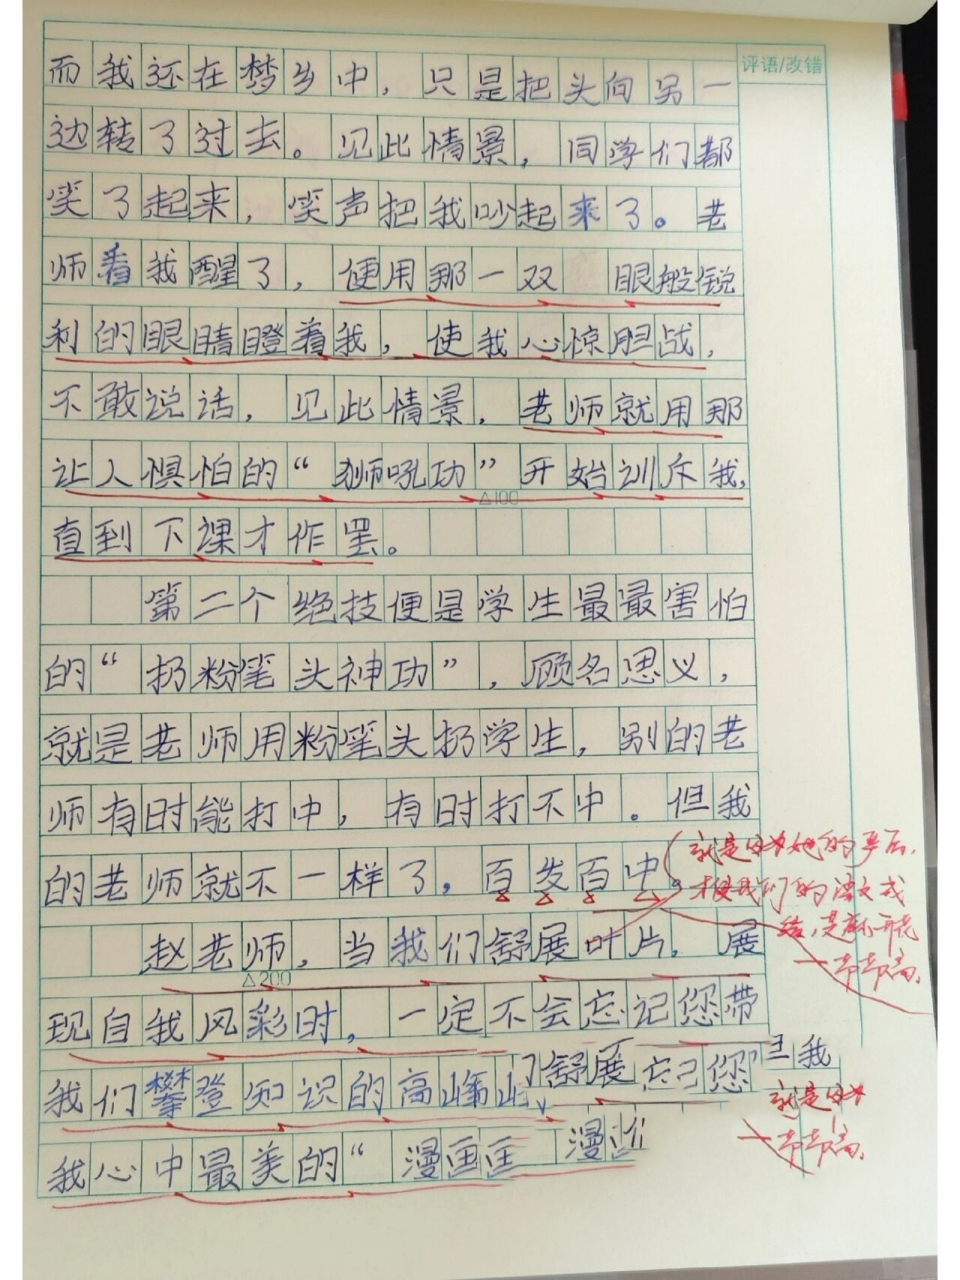 评语/改错
而我还在梦乡中，只是把头向另一
边转了过去。见此情景，同学们都
笑了起来，笑声把我吵起来了。老
师看我醒了，便用那一双 眼般锐
利的眼睛瞪着我，使我心惊胆战，
不敢说话，见此情景，老师就用那
让人惧怕的“狮吼功”开始训斥我，
△100
直到下课才作罢。
第二个绝技便是学生最最害怕
的“扔粉笔头神功”，顾名思义，
就是老师用粉笔头扔学生，别的老
师有时能打中，有时打不中。但我
的老师就不一样了，百发百中。
就是 她的严厉，
才 我们的 文成
绩，是
一节节高。
赵老师，当我们舒展叶片，展
△200
现自我风彩时，一定不会忘记您带
我们攀登知识的高峰 舒展 忘记您 但我
就是
我心中最美的“漫画 漫
一节节高。